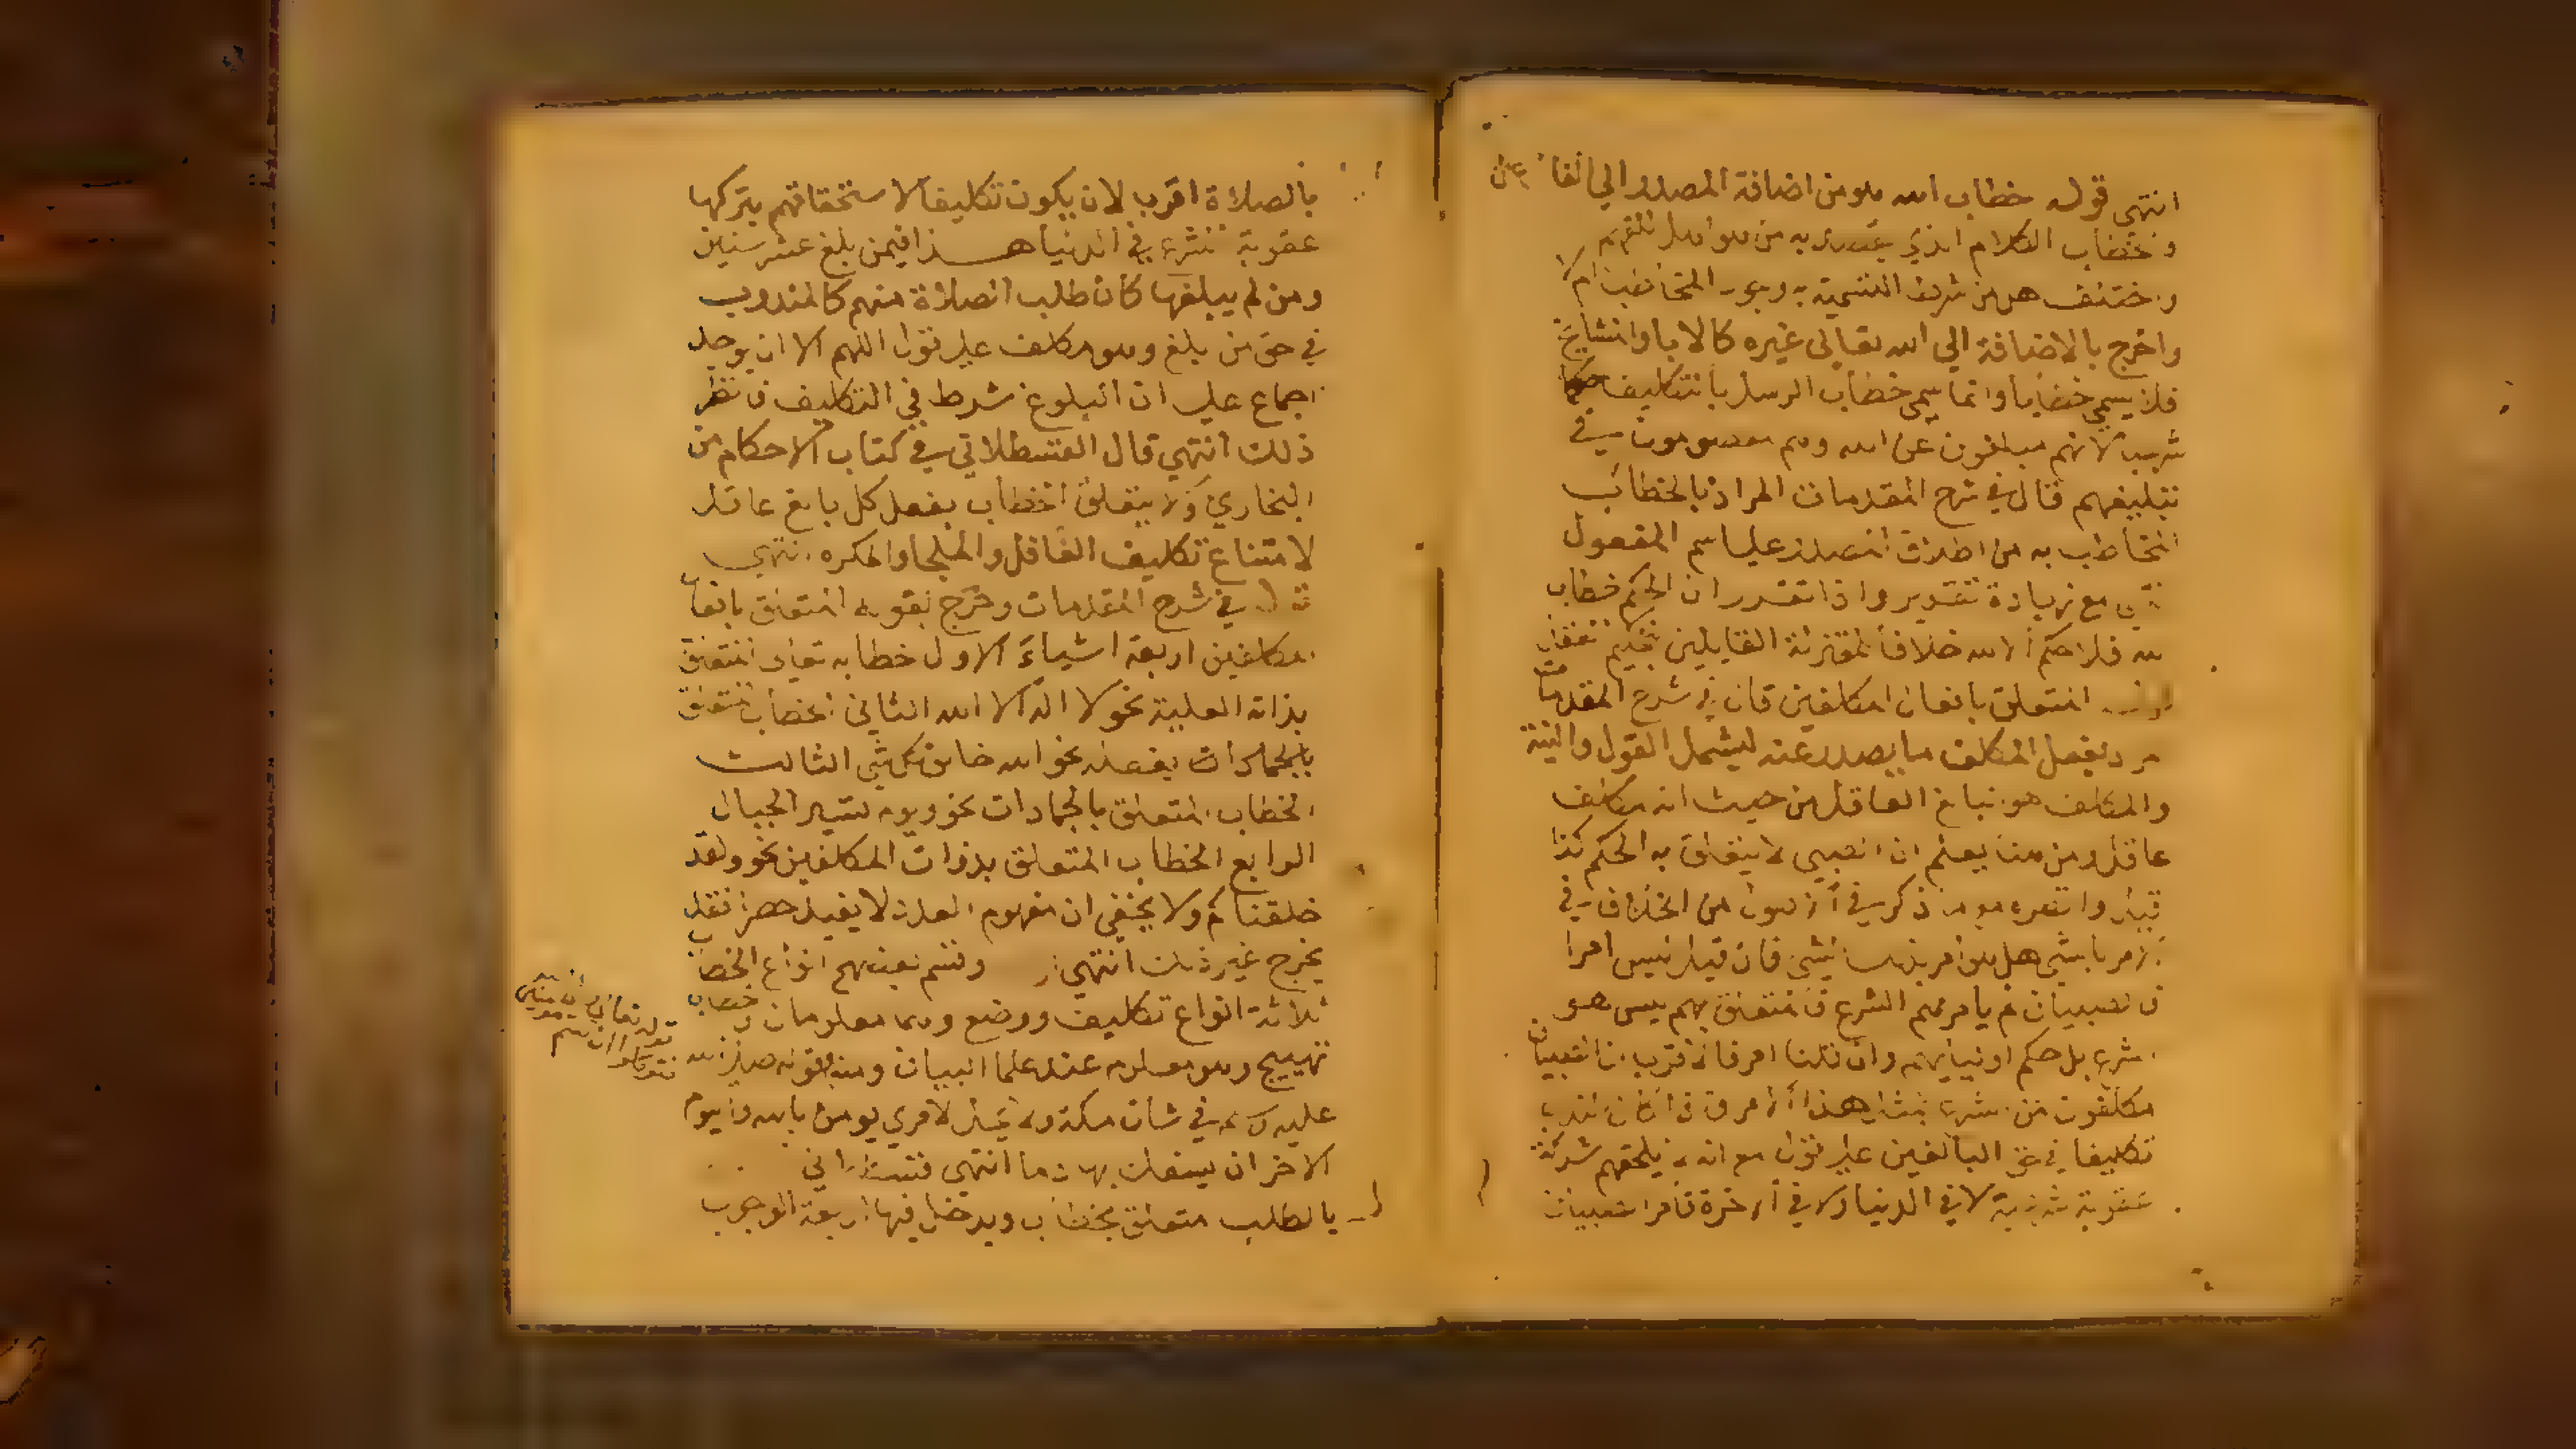 انتهى قوله خطاب الله هو من اضافة المصدر الي الفاعل
والخطاب الكلام الذي يقصد به من هو اهل للفهم
واختلف هل من شرط التسمية به وجود المخاطب ام لا
واخرج بالاضافة الي الله تعالى غيره كالابا والمشايخ
فلا يسمي خطابا وانما سمي خطاب الرسل بالتكليف حكما
لانهم مبلغون عن الله وهم معصومون في
تبليغهم قال في شرح المقدمات المراد بالخطاب
المخاطب به من اطلاق المصدر علي اسم المفعول
مع زيادة تقدير واذا تقرر ان الحكم خطاب
الله فلا حكم الا لله خلافا للمعتزلة القايلين بتحكيم العقل
المتعلق بافعال المكلفين قال في شرح المقدمات
بفعل المكلف ما يصدر عنه ليشمل القول والنية
والمكلف هو البالغ العاقل من حيث انه مكلف
عاقل ومن هنا يعلم ان الصبي لا يتعلق به الحكم كذا
قيل ما ذكر في الاصول من الخلاف في
الامر بالشي هل هو امر بذلك الشي فان قيل ليس امرا
فالصبيان لم يامرهم الشرع فالمتعلق بهم ليس هو
الشرع بل حكم اوليايهم وان قلنا امر فالاقرب ان الصبيان
مكلفون من الشرع بمثل هذا الامر
تكليفا في حق البالغين علي قول مع انه لا يلحقهم شرعا
عقوبة لا في الدنيا ولا في الاخرة فامر الصبيان
بالصلاة اقرب لان يكون تكليفا لاستحقاقهم بتركها
عقوبة الشرع في الدنيا هذا فيمن بلغ عشر سنين
ومن لم يبلغها كان طلب الصلاة منهم كالمندوب
في حق من بلغ وهو مكلف علي قول اللهم الا ان يوجد
اجماع علي ان البلوغ شرط في التكليف فانظر
ذلك انتهي قال القسطلاني في كتاب الاحكام من
البخاري ولا يتعلق الخطاب بفعل كل بالغ عاقل
لامتناع تكليف الغافل والملجا والمكره انتهي
قال في شرح المقدمات وخرج بقوله المتعلق بافعال
المكلفين اربعة اشياء الاول خطابه تعالى المتعلق
بذاته العلية نحو لا اله الا الله الثاني الخطاب المتعلق
بفعله نحو الله خالق كل شي الثالث
الخطاب المتعلق بالجمادات نحو ويوم نسير الجبال
الرابع الخطاب المتعلق بذوات المكلفين نحو ولقد
خلقناكم ولا يخفي ان مفهوم العدد لا يفيد حصرا فقد
يخرج غير ذلك انتهي وقسم بعضهم انواع الخطاب
ثلاثة انواع تكليف ووضع وهما معلومان وخطاب
تهييج وهو معلوم عند علما البيان ومنه قوله صلى الله
عليه وسلم في شان مكة ولا يحل لامري يومن بالله واليوم
الاخر ان يسفك بها دما انتهي قسطلاني
بالطلب متعلق بخطاب ويدخل فيها اربعة الوجوب